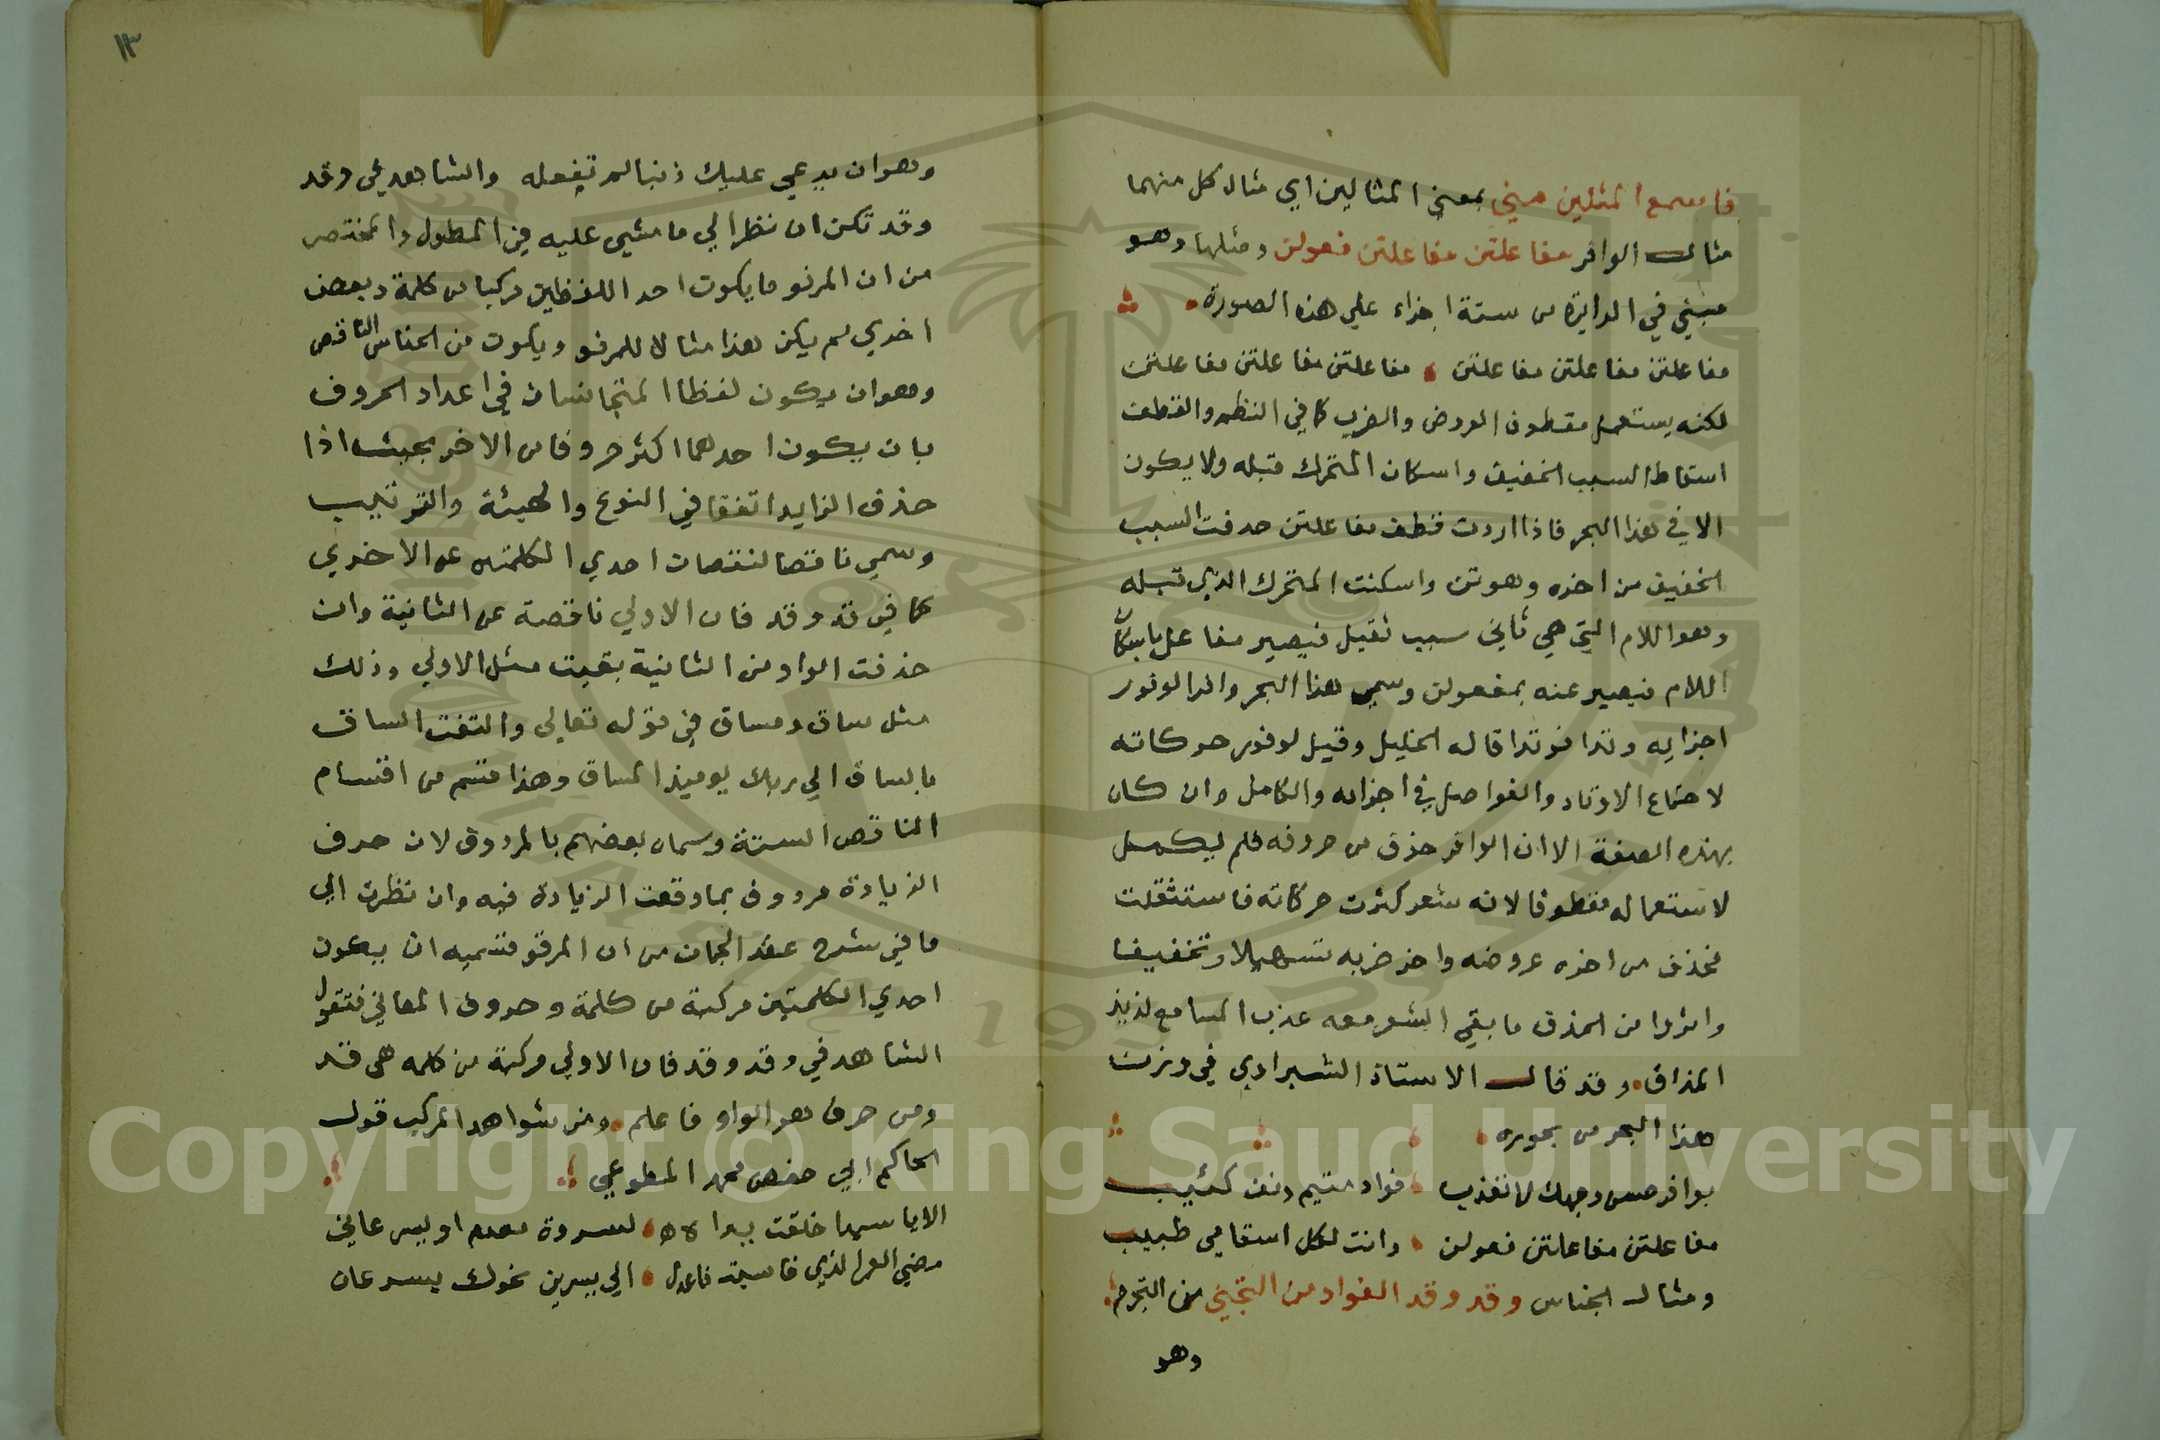 فاسمع المثلين مني بمعني المثالين اي مثال كل منهما
مثال الوافر مفاعلتن مفاعلتن فعولن ومثلها وهو
مبني في الدايرة من ستة اجزاء علي هذه الصورة
مفاعلتن مفاعلتن مفاعلتن مفاعلتن مفاعلتن مفاعلتن
لكنه يستعمل مقطوف العروض والضرب كما في النظم والقطف
اسقاط السبب الخفيف واسكان المتحرك قبله ولا يكون
الا في هذا البحر فاذا اردت قطف مفاعلتن حدفت السبب
الخفيف من اخره وهو تن واسكنت المتحرك الذي قبله
وهو اللام التي هي ثاني سبب ثقيل فيصير مفاعل باسكان
اللام فيعبر عنه بفعولن وسمي هذا البحر وافرا لوفور
اجزايه وتدا فوتدا قاله الخليل وقيل لوفور حركاته
لاجتماع الاوتاد والفواصل في اجزائه والكامل وان كان
بهذه الصفة الا ان الوافر حذف من حروفه فلم يكمل
لاستعماله مقطوفا لانه شعر كثرت حركاته فاستثقلت
فحذف من اخره عروضه واخر ضربه تسهيلا وتخفيفا
من الحذف ما بقي الشعر معه عذب المسامع لذيذ
المذاق وقد قال الاستاذ الشبراوي في وزن
هذا البحر من بحوره
بوافر حسن وجهك لا تعذب فواد متيم دنف كئيب
مفاعلتن مفاعلتن فعولن وانت لكل اسقامي طبيب
ومثال الجناس وقد وقد الفواد من التجني من التجرم
وهو
١٣
وهو ان يدعي عليك ذنبا لم تفعله والشاهد في وقد
وقد تكن ان نظر الي ما مشي عليه في المطول والمختصر
من ان المرفو ما يكون احد اللفظين مركبا من كلمة وبعض
اخري لم يكن هذا مثالا للمرفو ويكون من الجناس الناقص
وهو ان يكون لفظا المتجانسان في اعداد الحروف
بان يكون احدهما اكثر حروفا من الاخر بحيث اذا
حذف الزايد اتفقا في النوع والهيئة والترتيب
وسمي ناقصا لنقصان احدي الكلمتين عن الاخري
كما في قد وقد فان الاولي ناقصة عن الثانية وان
حذفت الواو من الثانية بقيت مثل الاولي وذلك
مثل ساق ومساق في قوله تعالي والتفت الساق
بالساق الي ربك يوميذ المساق وهذا قسم من اقسام
الناقص الستة وسماه بعضهم بالمردوف لان حرف
الزيادة مردوف بما وقعت الزيادة فيه وان نظرت الي
ما في شرح عقد الجمان من ان المرفو قسميه ان يكون
احدي الكلمتين مركبة من كلمة وحروف المعاني فتقول
الشاهد في وقد وقد فان الاولي مركبة من كلمه هي قد
ومن حرف هو الواو فاعلم ومن شواهد المركب قول
الحاكم ابي حفص محمد المطوعي
الا يا سيدا خلقت يداه لثروة معدم او يسر عاني
مضي العسر الذي قاسيت فاعدل الي يسرين نحوك يسرعان
Copyright © King Saud University